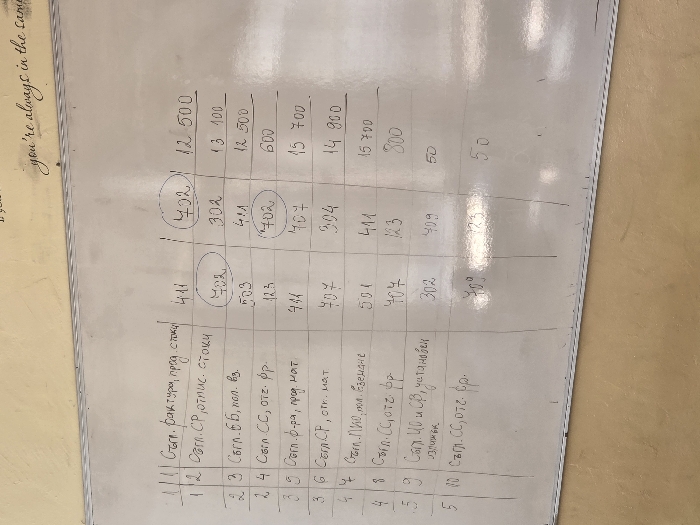 you're always in the same
1 1 Съгл. фактура, прод. стоки 411 702 12 500
1 2 Съгл. СР, отпис. стоки 702 302 13 100
2 3 Съгл. ББ, пол. вз. 503 411 12 500
2 4 Съгл. СС, отч. фр. 123 702 600
3 5 Съгл. ф-ра, прод. мат 411 707 15 700
3 6 Съгл. СР, отп. мат 707 304 14 900
4 7 Съгл. ПКО, пол. вземане 501 411 15 700
4 8 Съгл. СС, отч. фр. 707 123 800
5 9 Съгл. ИО и СВ, установен излишък 302 709 50
5 10 Съгл. СС, отч. фр. 709 123 50